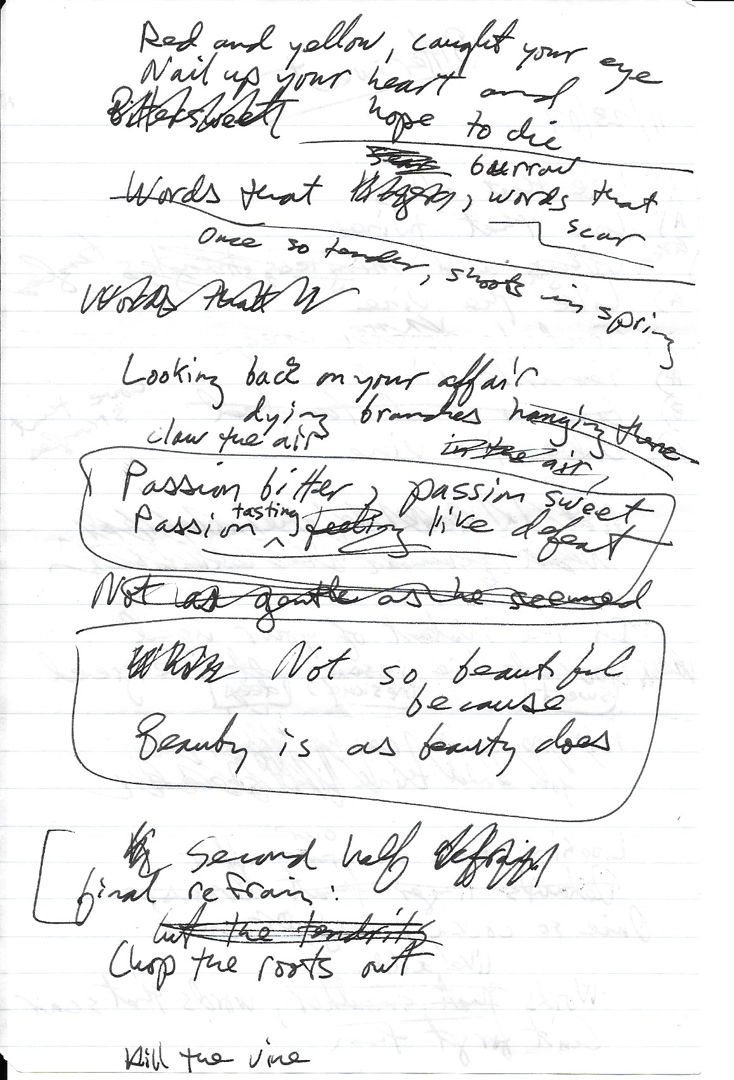 Red and yellow, caught your eye
Nail up your heart and
hope to die
Bittersweet
burrow
Words that, words that
scar
Once so tender, shoots in spring
Words that
Looking back on your affair
dying branches hanging there
claw the air
in the air,
Passion bitter, passion sweet
tasting
Passion feeling like defeat
Not as gentle as he seemed
Not so beautiful
because
Beauty is as beauty does
second half
final refrain:
cut the tendrils
Chop the roots out
Kill the vine